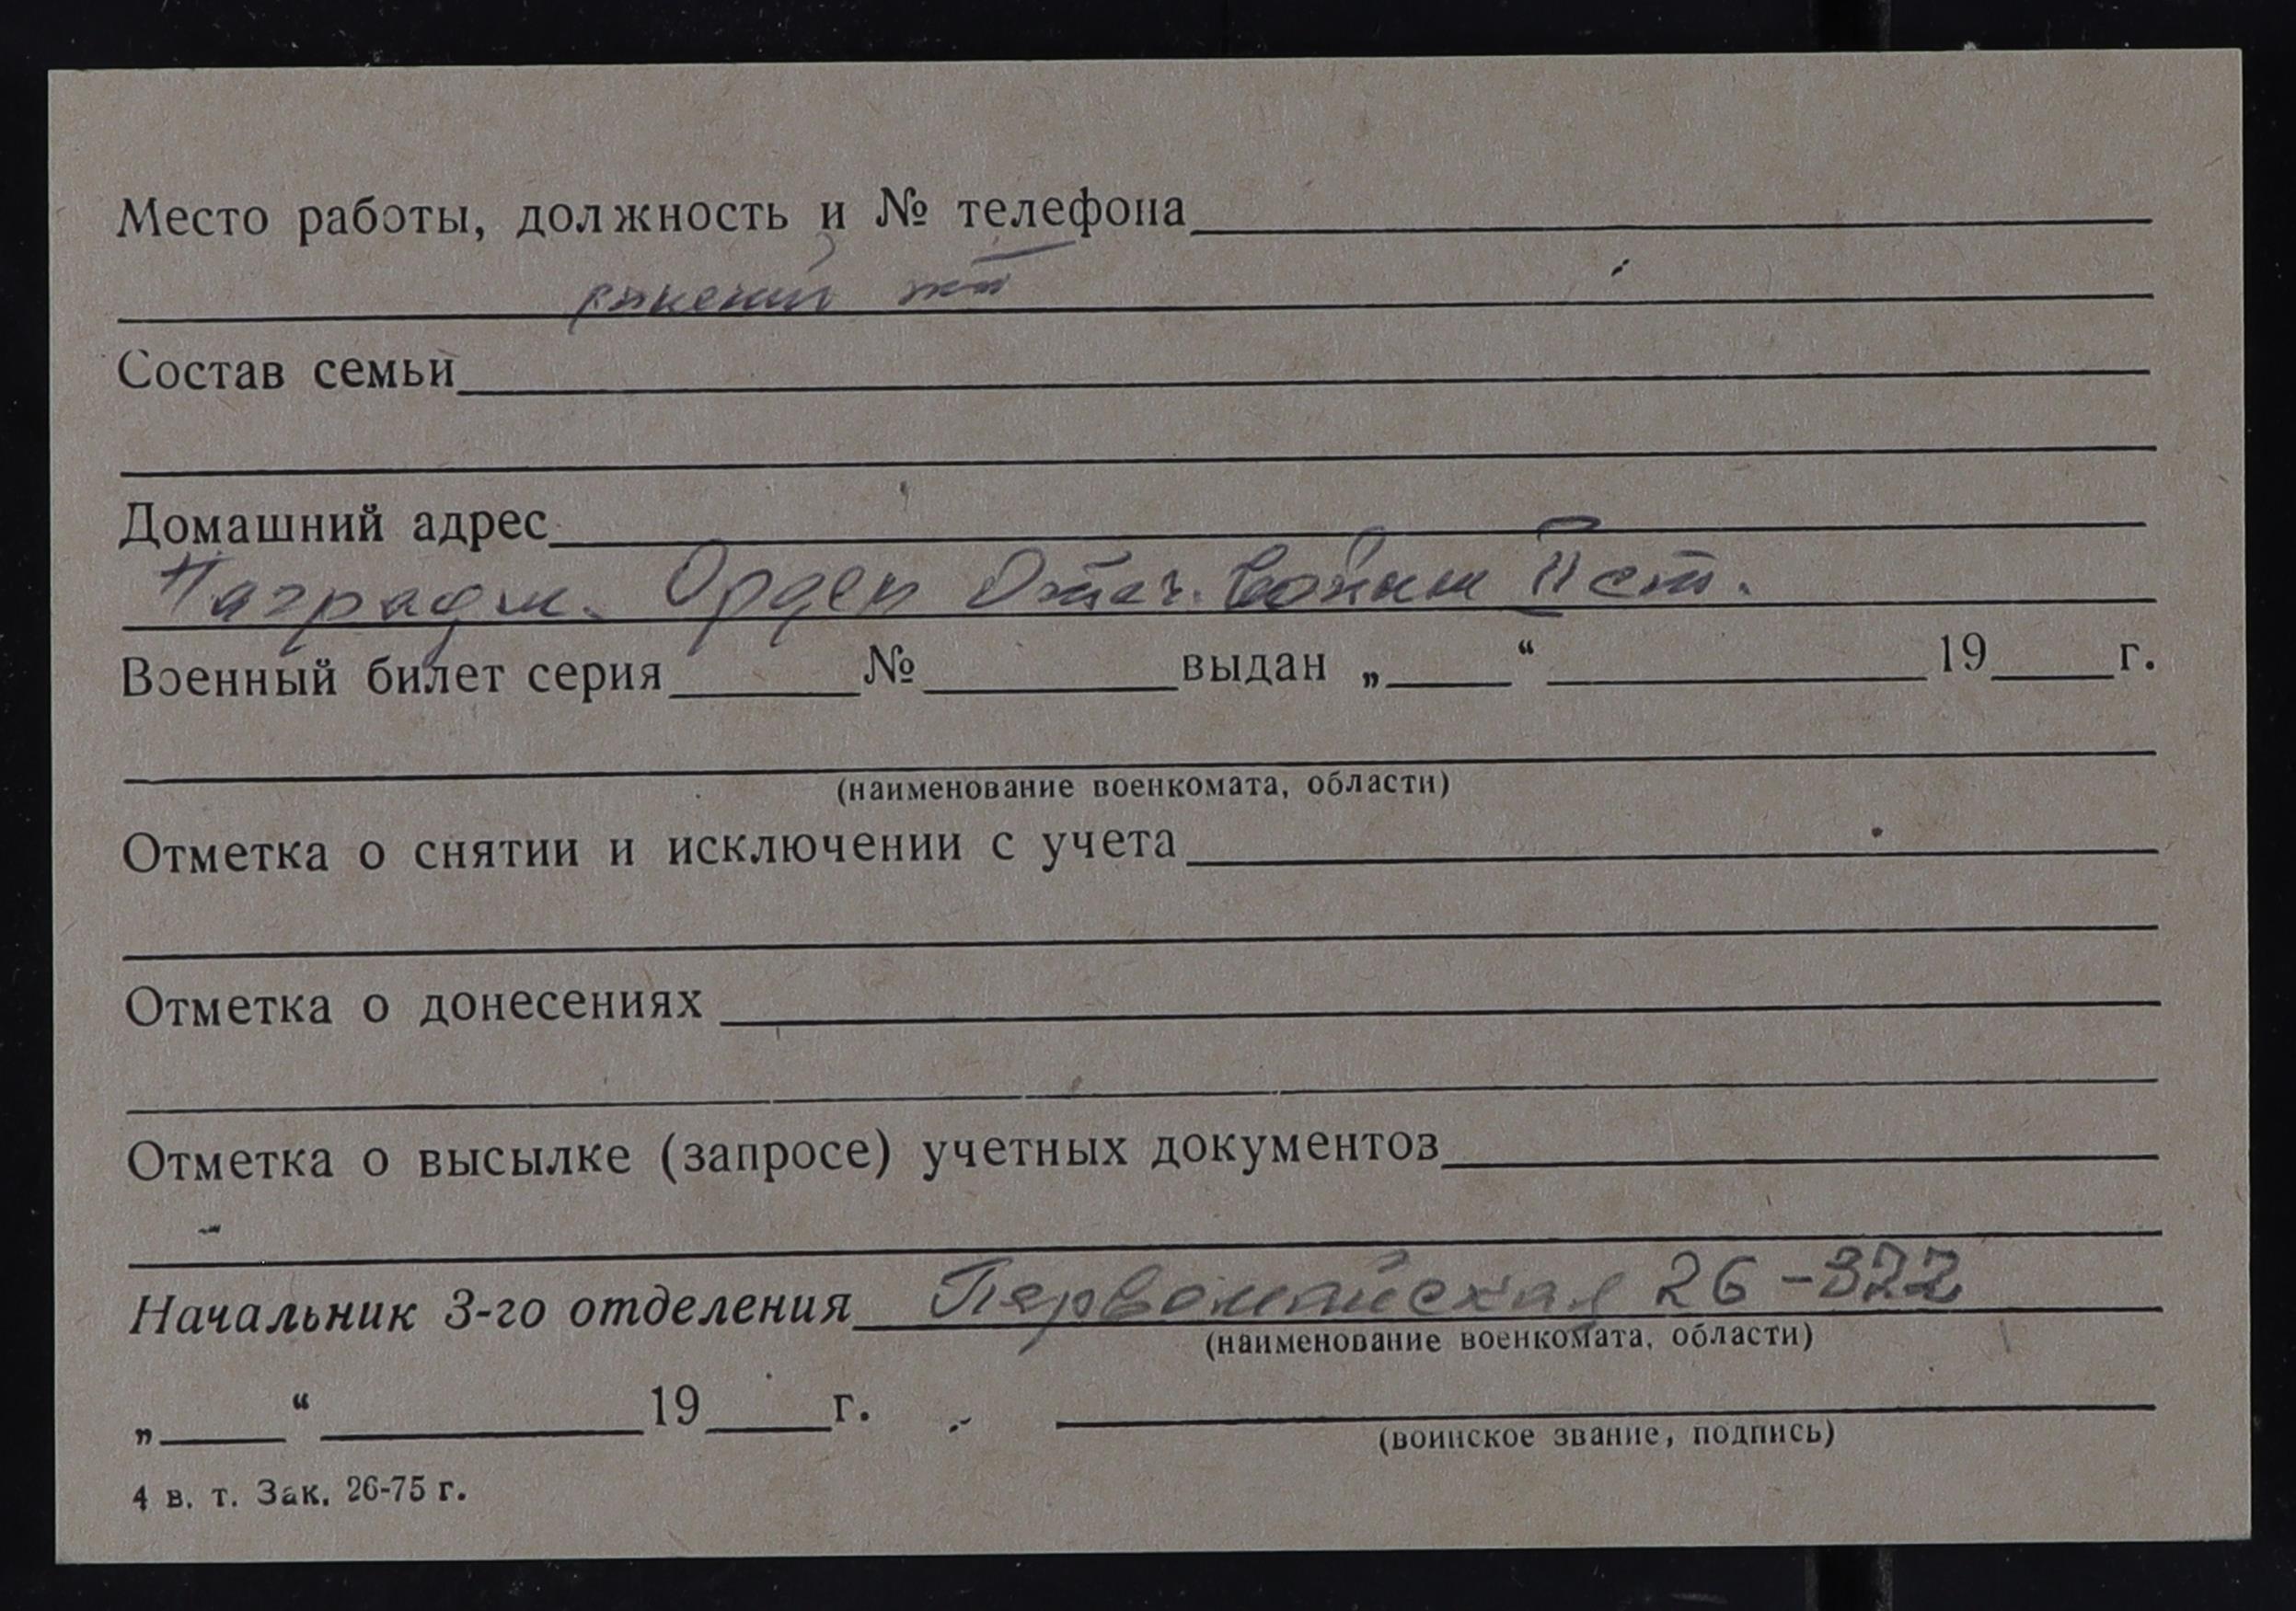 Место работы, должность и № телефона
Состав семьи
Домашний адрес
Наградн. Орден Отеч. Войны II ст.
Военный билет серия № выдан „ “ 19 г.
(наименование военкомата, области)
Отметка о снятии и исключении с учета
Отметка о донесениях
Отметка о высылке (запросе) учетных документов
Начальник 3-го отделения Первомайская 26-322
(наименование военкомата, области)
„ “ 19 г.
(воинское звание, подпись)
4 в. т. Зак. 26-75 г.